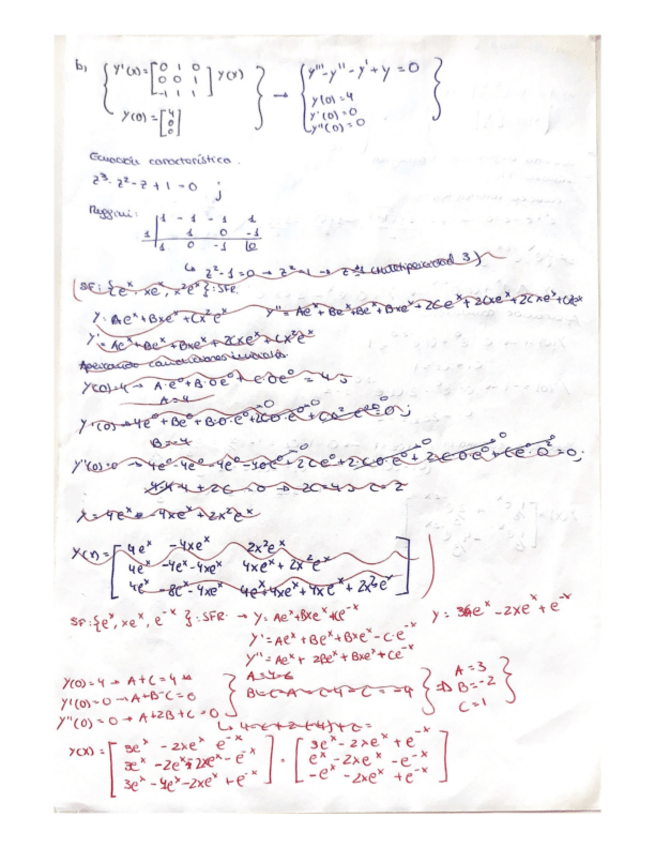 b) { Y'(x) = [0 1 0; 0 0 1; -1 1 1] Y(x) } → { y''' - y'' - y' + y = 0
Y(0) = [4; 0; 0] y(0) = 4
y'(0) = 0
y''(0) = 0 }
Ecuación característica.
z³ - z² - z + 1 = 0 ;
Ruffini: 1 -1 -1 1
1 | 1 0 -1
1 0 -1 |0
↳ z² - 1 = 0 →
SF: {e^x, xe^x, x²e^x} : SFR.
y = Ae^x + Bxe^x + Cx²e^x
y' = Ae^x + Be^x + Bxe^x + 2Cxe^x + Cx²e^x
y'' = Ae^x + Be^x + Be^x + Bxe^x + 2Ce^x + 2Cxe^x + 2Cxe^x + Cx²e^x
Aplicando condiciones iniciales
y(0) = 4 → A·e⁰ + B·0e⁰ + C·0e⁰ = 4 ;
A = 4
y'(0) → 4e⁰ + Be⁰ + B·0·e⁰ + 2C0·e⁰ + C0²e⁰ = 0 ;
B = -4
y''(0) = 0 → 4e⁰ - 4e⁰ - 4e⁰ - 4·0e⁰ + 2Ce⁰ + 2·C·0·e⁰ + 2·C·0·e⁰ + Ce⁰·0² = 0 ;
+ 2C = 0 → 2C = 4 → C = 2
y = 4e^x - 4xe^x + 2x²e^x
Y(x) = [4e^x -4xe^x 2x²e^x
4e^x -4e^x - 4xe^x 4xe^x + 2x²e^x
4e^x -8e^x - 4xe^x 4e^x + 4xe^x + 4xe^x + 2x²e^x]
SF: {e^x, xe^x, e^-x} : SFR → y = Ae^x + Bxe^x + Ce^-x y = 3e^x - 2xe^x + e^-x
y' = Ae^x + Be^x + Bxe^x - C·e^-x
y'' = Ae^x + 2Be^x + Bxe^x + Ce^-x
y(0) = 4 → A + C = 4
y'(0) = 0 → A + B - C = 0
y''(0) = 0 → A + 2B + C = 0
} ⇒ A = 3
B = -2
C = 1 }
Y(x) = [3e^x - 2xe^x e^-x
3e^x - 2e^x - 2xe^x - e^-x
3e^x - 4e^x - 2xe^x + e^-x] = [3e^x - 2xe^x + e^-x
e^x - 2xe^x - e^-x
-e^x - 2xe^x + e^-x]